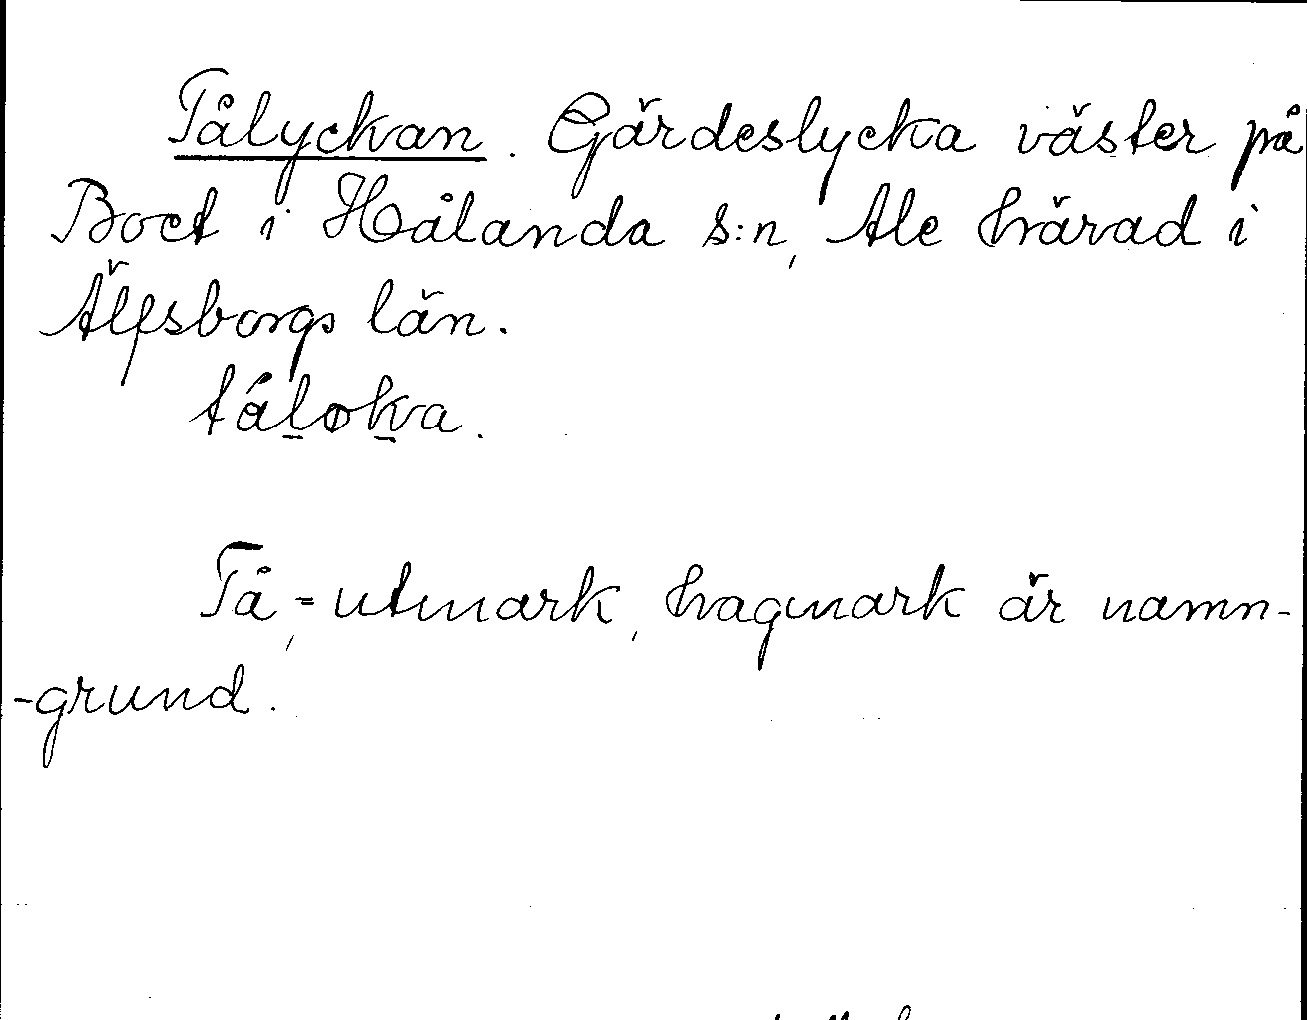 Tålyckan. Gärdeslycka väster på
Boet i Hålanda s:n, Ale härad i
Älfsborgs län.
tåløka.
Tå,= utmark, hagmark är namn-
-grund.